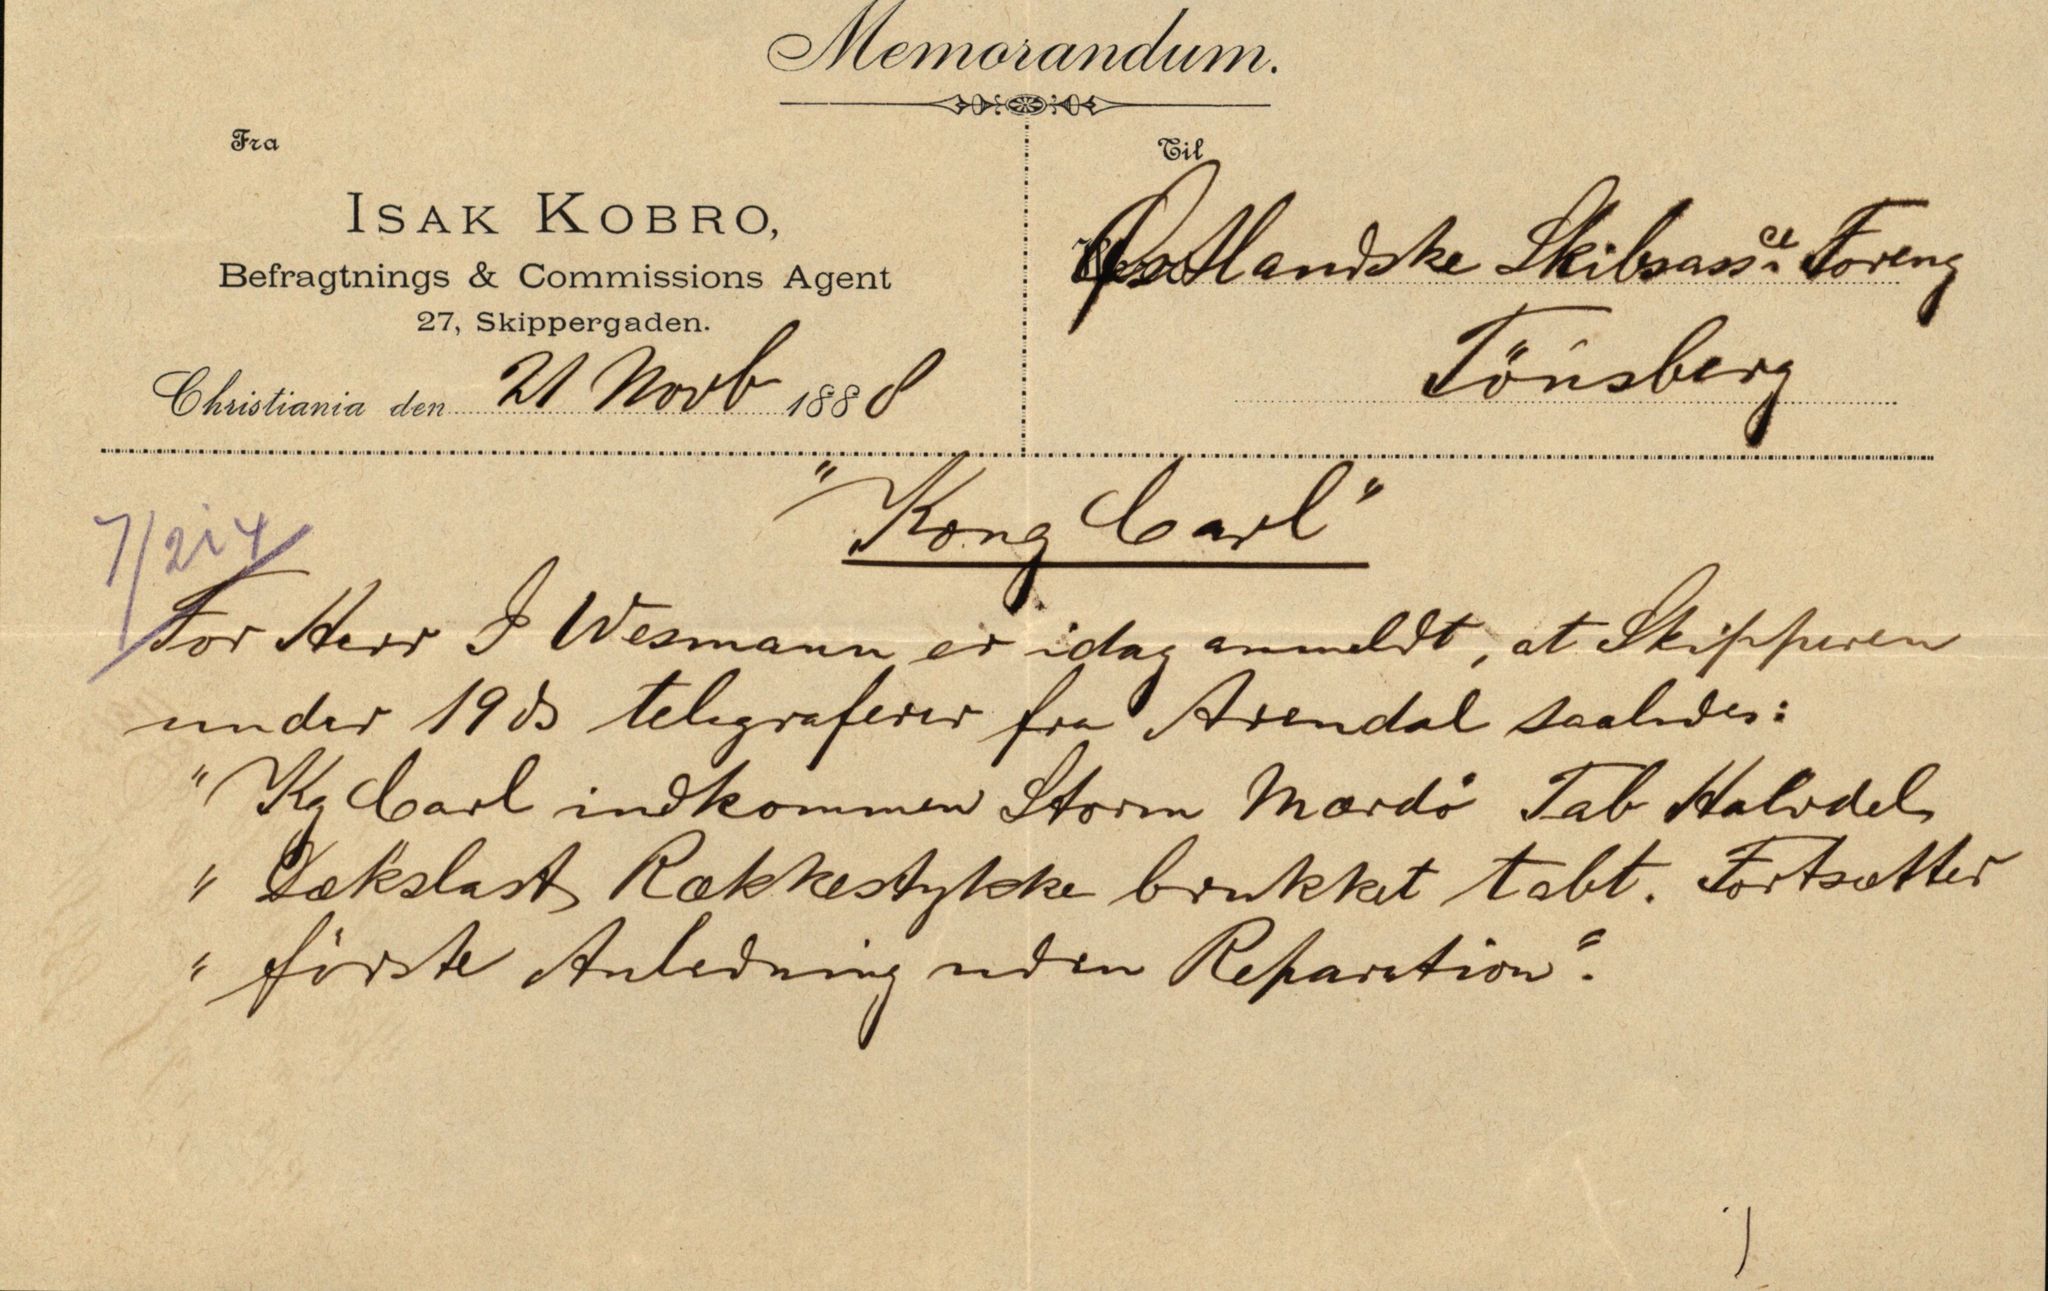 Memorandum.
Fra
Til
ISAK KOBRO,
Befragtnings & Commissions Agent
27, Skippergaden.
Christiania den 21 Novb 1888
Østlandske Skibsassce Foreng
Tönsberg
"Kong Carl"
7/214
For Herr J Wesmann er idag anmeldt, at Skipperen
under 19 ds telegraferer fra Arendal saaledes:
"Kg Carl indkommen Storm Mærdö Tab Halvdel
" Dækslast, Rækkestykke brukket tabt. Fortsætter
" förste Anledning uden Reparation".